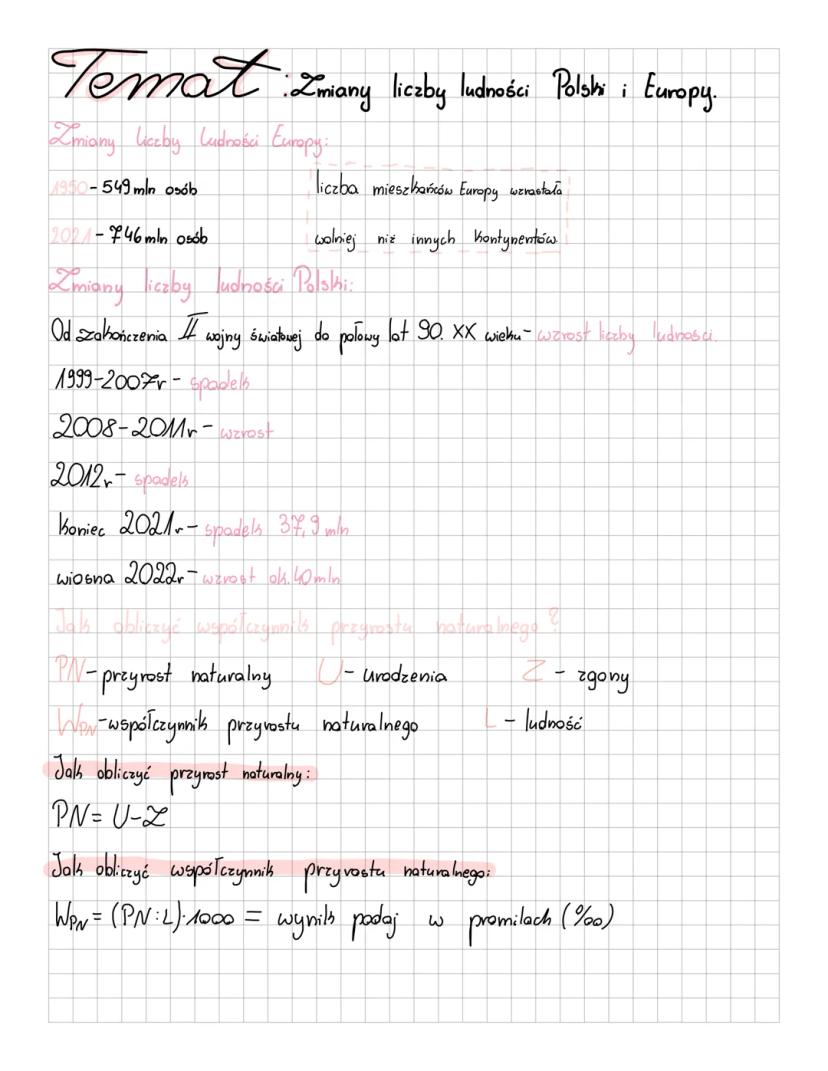 Temat: Zmiany liczby ludności Polski i Europy.
Zmiany liczby ludności Europy:
1950 - 549 mln osób
liczba mieszkańców Europy wzrastała
2021 - 746 mln osób
wolniej niż innych kontynentów
Zmiany liczby ludności Polski:
Od zakończenia II wojny światowej do połowy lat 90. XX wieku - wzrost liczby ludności.
1999-2007r - spadek
2008-2011r - wzrost
2012r - spadek
koniec 2021r - spadek 37,9 mln
wiosna 2022r - wzrost ok. 40 mln
Jak obliczyć współczynnik przyrostu naturalnego?
PN - przyrost naturalny U - urodzenia Z - zgony
WPN - współczynnik przyrostu naturalnego L - ludność
Jak obliczyć przyrost naturalny:
PN = U-Z
Jak obliczyć współczynnik przyrostu naturalnego:
WPN = (PN:L)·1000 = wynik podaj w promilach (‰)